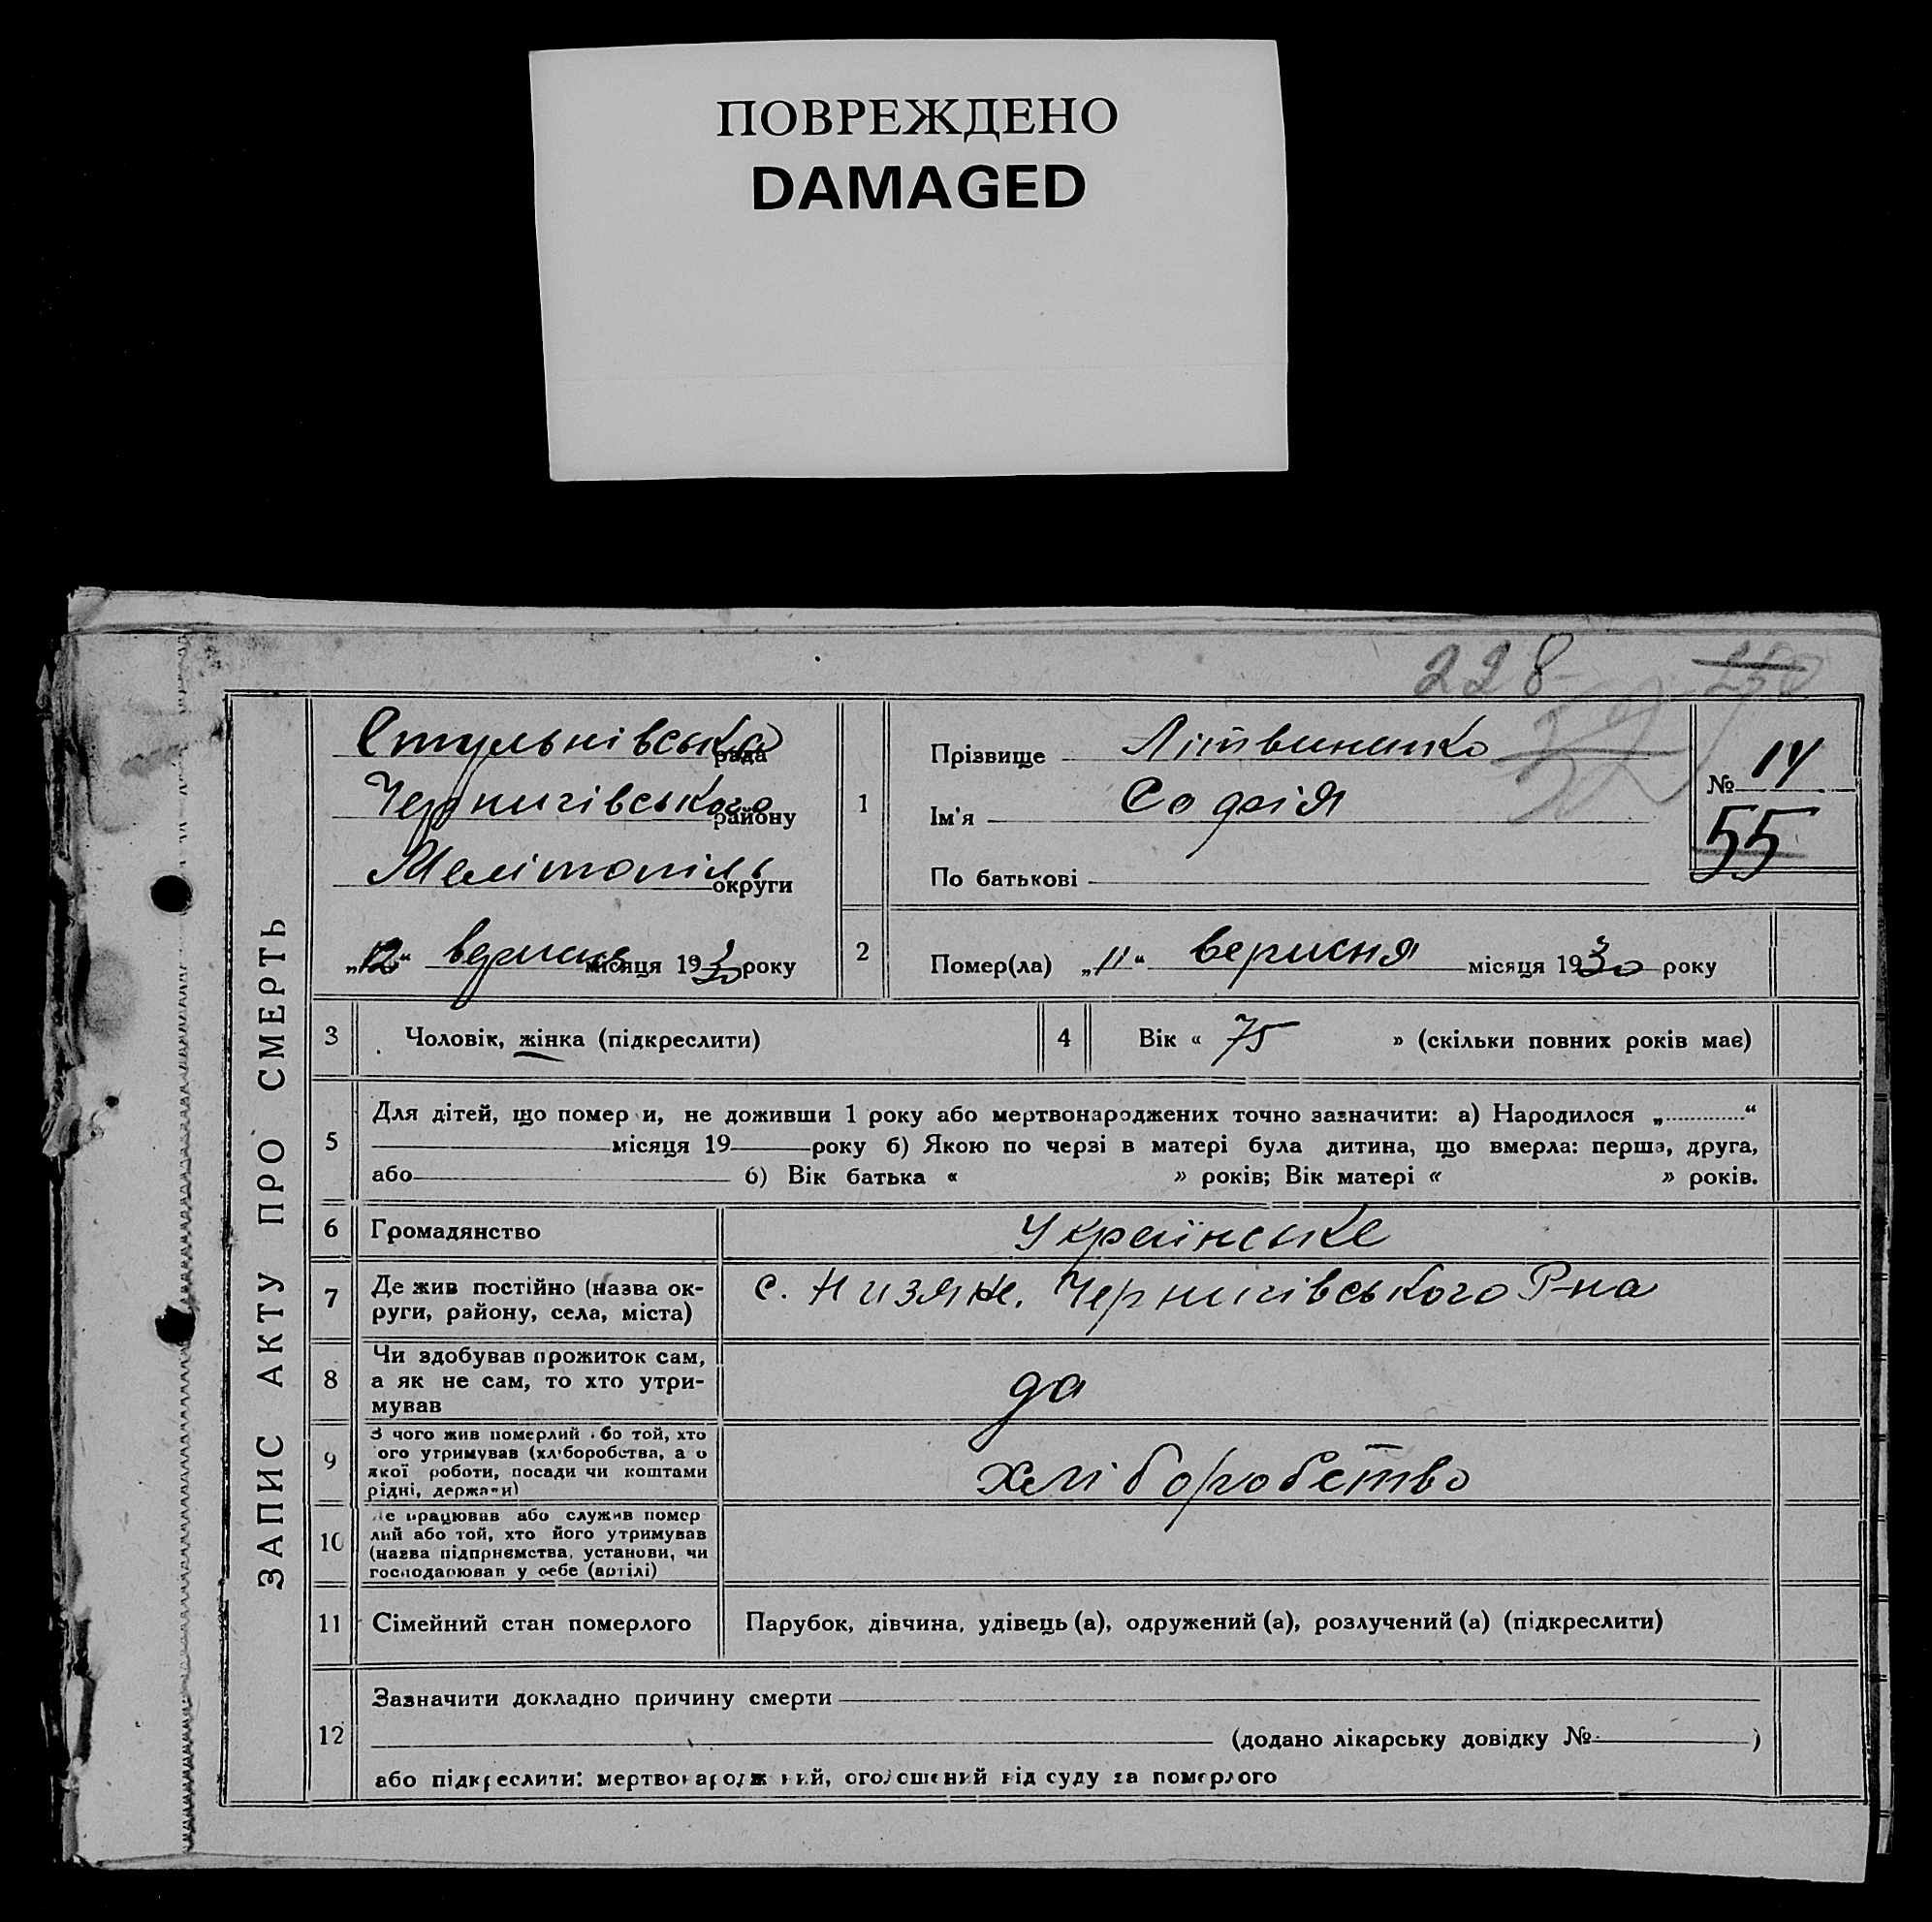 ПОВРЕЖДЕНО
DAMAGED
228
ЗАПИС АКТУ ПРО СМЕРТЬ
Стульнівська рада
Чернигівського району
Мелітопіль округи
„12“ вересня місяця 1930 року
1
Прізвище Літвиненко
Ім'я Софія
По батькові
№ 14
55
2
Помер(ла) „11“ вересня місяця 1930 року
3 Чоловік, жінка (підкреслити)
4 Вік « 75 » (скільки повних років має)
5 Для дітей, що помер и, не доживши 1 року або мертвонароджених точно зазначити: а) Народилося „ “
місяця 19 року б) Якою по черзі в матері була дитина, що вмерла: перша, друга,
або б) Вік батька « » років; Вік матері « » років.
6 Громадянство Українське
7 Де жив постійно (назва ок-
руги, району, села, міста)
с. Низяне. Чернигівського Р-на
8 Чи здобував прожиток сам,
а як не сам, то хто утри-
мував
да
9 З чого жив померлий бо той, хто
ого утримував (хліборобства, а о
якої роботи, посади чи коштами
рідні, держави)
хліборобство
10 е працював або служив помер
лий або той, хто його утримував
(назва підприємства, установи, чи
господарював у себе (артілі)
11 Сімейний стан померлого Парубок, дівчина, удівець (а), одружений (а), розлучений (а) (підкреслити)
12 Зазначити докладно причину смерти
(додано лікарську довідку № )
або підкреслити: мертвонародж ний, оголошений від суду за померлого